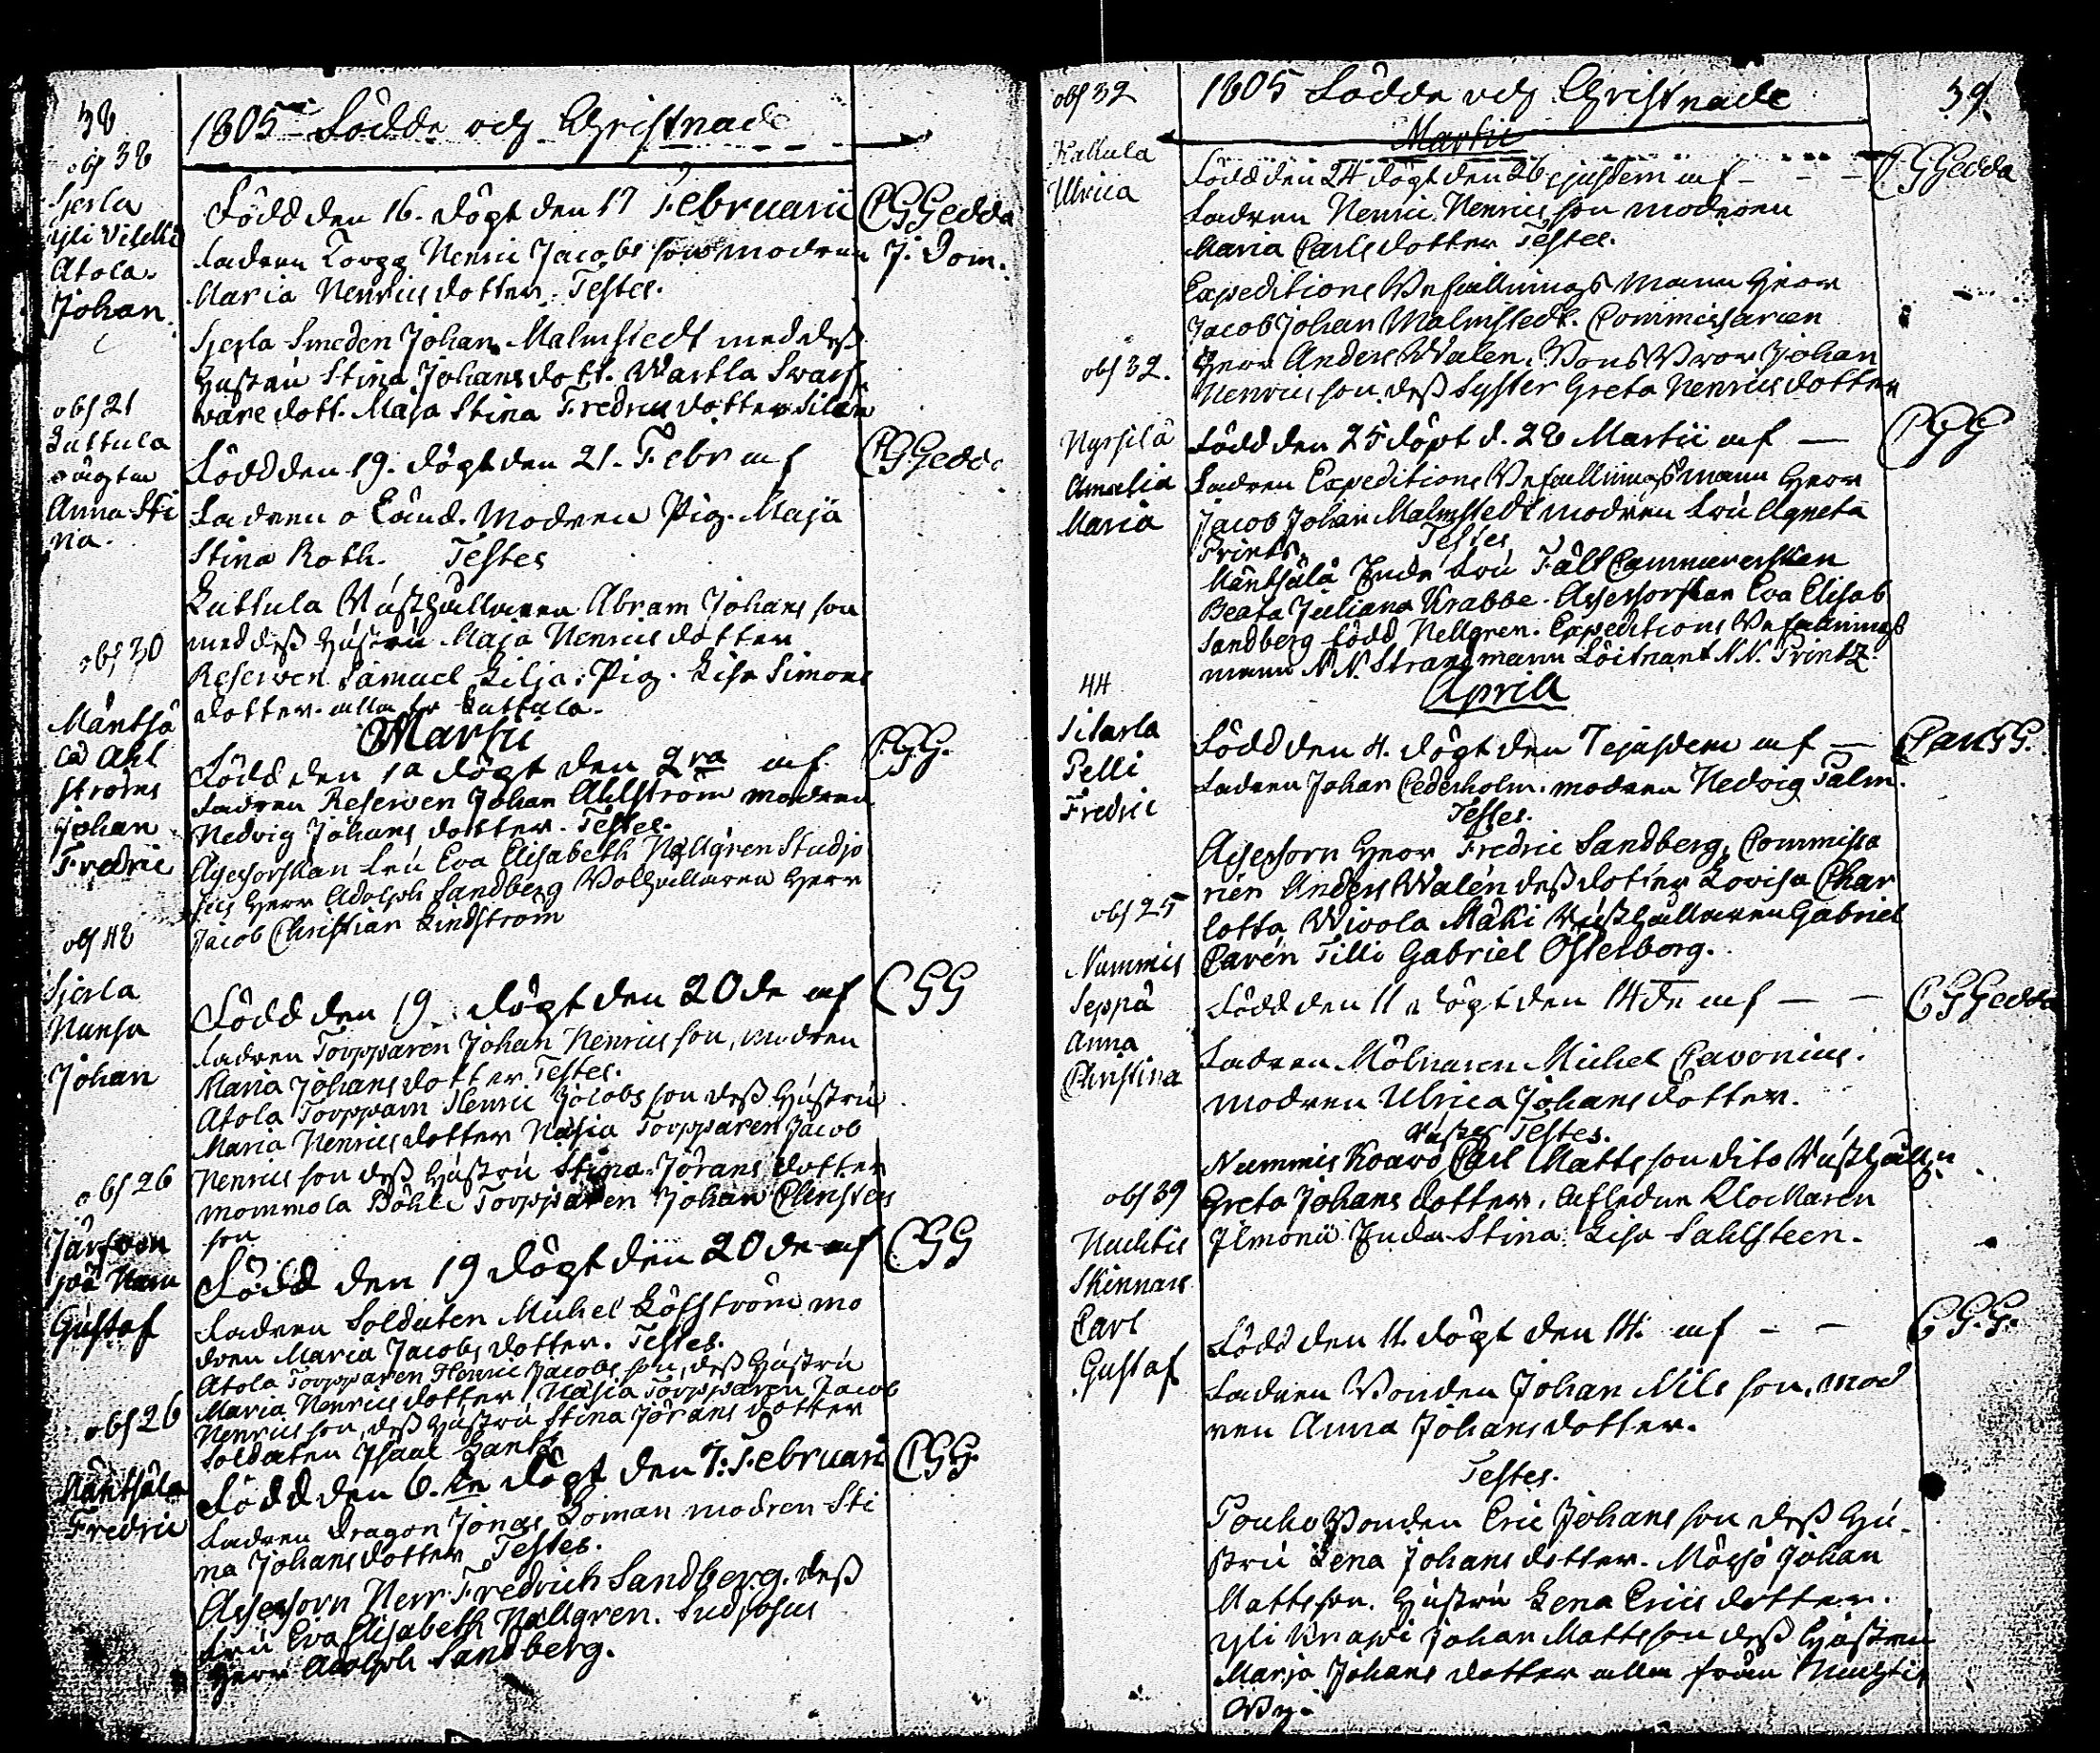 38
1805 Födde och Christnade
obs 38
Sjerla
Yli Viselli
Atola.
Johan
Född den 16. döpt den 17 Februarii CGGedda
fadren Torpp Henric Jacobs son modren J. Dom.
Maria Henrics dotter. Testes.
Sjerla Smeden Johan Malmstedt med dess
hustru Stina Johans dott. Wartla
dott. Maja Stina Fredrics dotter
obs 21
Luttula
Anna Sti
na.
Född den 19. döpt den 21. Febr af CGGedda
Fadren o känd. Modren Pig. Maja
Stina Roth. Testes
Luttula Rusthållaren Abram Johans son
med dess hustru Maja Henrics dotter
Reserven Samuel Lilja. Pig. Lisa Simons
dotter alla fr Luttula.
obs 30
Mäntsä
lä Ahl
ströms
Johan
Fredric
Martii
Född den 1a döpt den 2ra af CGG.
fadren Reserven Johan Ahlström modren
Hedvig Johans dotter. Testes.
Assessorskan fru Eva Elisabeth Nellgren Studio
sus Herr Adolph Sandberg Bokhållaren Herr
Jacob Christian Lindström
obs 48
Sjerla
Johan
Född den 19. döpt den 20de af CGG
fadren Torpparen Johan Henrics son, modren
Maria Johans dotter Testes.
Atola Torpparn Henric Jacobs son dess hustru
Maria Henrics dotter Torpparen Jacob
Henrics son dess hustru Stina Jörans dotter
Mommola Böhle Torpparen Johan Christers
son
obs 26
Gustaf
Född den 19 döpt den 20de af CGG
fadren Soldaten Michel Löfström mo
dren Maria Jacobs dotter. Testes.
Atola Torpparen Henric Jacobs son, dess hustru
Maria Henrics dotter, Torpparen Jacob
Henrics son, dess hustru Stina Jörans dotter
Soldaten Isaac
obs 26
Mäntsälä
Fredric
Född den 6.te döpt den 7. Februari CGG.
fadren dragon Jonas Loman modren Sti
na Johans dotter Testes.
Assessorn Herr Fredrich Sandberg. dess
fru Eva Elisabeth Nellgren. Studiosus
Herr Adolph Sandberg.
obs 32
1805 Födde och Christnade
39.
Martii
Kakula
Ulrica
Född den 24 döpt den 26 ejusdem af CGGedda
Fadren Henric Henrics son modren
Maria Carls dotter Testes.
Expeditions Befallnings Mann Herr
Jacob Johan Malmstedt. Commissarien
Herr Anders Walen. Johan
Henrics son, dess Syster Greta Henrics dotter
obs 32.
Nyssilä
Amalia
Maria
Född den 25 döpt d. 28 Martii af CGG
Fadren Expeditions Befallningsmann Herr
Jacob Johan Malmstedt modren fru Agneta
Printz. Testes
Mäntsälä Enke fru Fält Cammererskan
Beata Juliana Krabbe. Assessorskan Eva Elisab
Sandberg född Nellgren. Expeditions Befallnings
mann N N. Strandmann Löitnant N. N. Printz.
44
Pelli
Fredric
Aprill
Född den 4. döpt den 7 ejusdem af
Fadren Johan Cederholm. modren Hedvig Palm.
Testes.
Assessorn Herr Fredric Sandberg, Commissa
rien Anders Walén dess dotter Lovisa Char
lotta Wivola Mäki Rusthållaren Gabriel
Carén Tilli Gabriel Österborg.
obs 25
Nummis
Seppä
Anna
Christina
Född den 11 döpt den 14de af CGGedda
Fadren Mölnaren Michel Cavonius.
modren Ulrica Johans dotter.
Testes.
Nummis Koavo Carl Matts son dito Rusthåll
Greta Johans dotter, afledne Klockaren
Ilmonii Enka Stina Lisa Sahlsteen.
obs 39
Huchtis
Skinnars
Carl
Gustaf
Född den 11. döpt den 14. af CG.G.
Fadren Bonden Johan Nils son, mod
ren Anna Johans dotter.
Testes.
Pouhu Bonden Eric Johans son dess hu
stru Lena Johans dotter. Johan
Matts son. hustru Lena Erics dotter.
Yli Knapi Johan Matts son dess hustru
Marja Johans dotter alla från Huchtis
By.